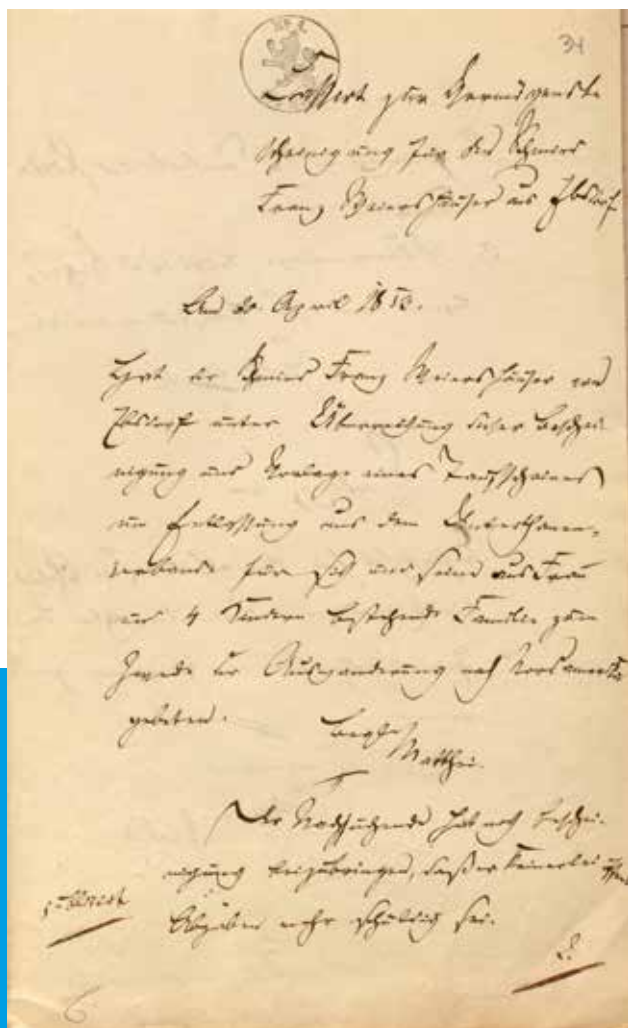 34
zur Vermögensbe-
scheinigung für den Schmied
Franz Meiershäuser aus Ebsdorf
Am 20. April 1853.
Hat der Schmied Franz Meiershäuser von
Ebsdorf unter Überreichung dieser Beschei-
nigung und Vorlage eines Taufscheines
um Entlassung aus dem Unterthanen-
verband für sich und seine aus Frau
und 4 Kindern bestehende Familie zum
Zwecke der Auswanderung nach Nordamerika
gebeten.
Matthei.
Der Nachsuchende hat noch Beschei-
nigung beizubringen, daß er keinerlei
Abgaben mehr schuldig sei.